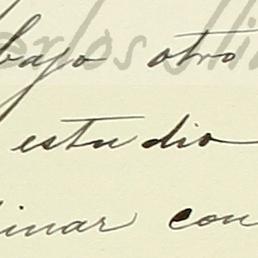 bajo otro
estudio
inar con